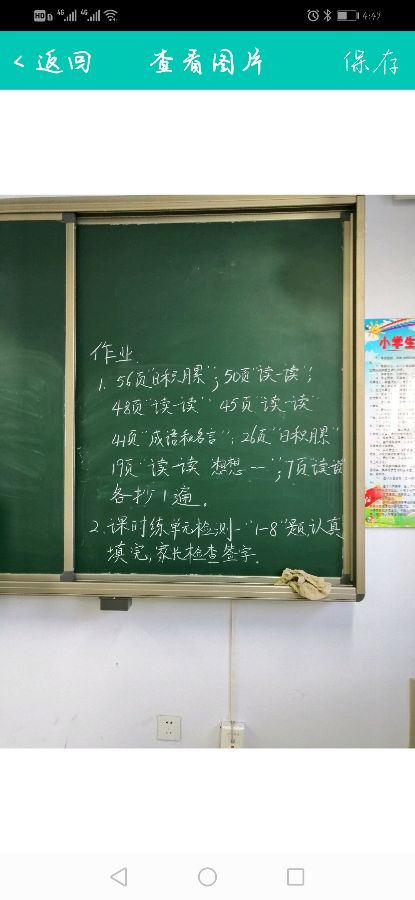 HD 4G 4G 4:49
< 返回 查看图片 保存
作业
1. 56页"日积月累"; 50页"读一读";
48页"读一读" 45页"读一读"
44页"成语和名言"; 26页"日积月累"
19页"读一读 想想一一"; 7页"读读
各抄1遍.
2. 课时练单元检测一"1-8"题,认真
填完,家长检查签字.
小学生